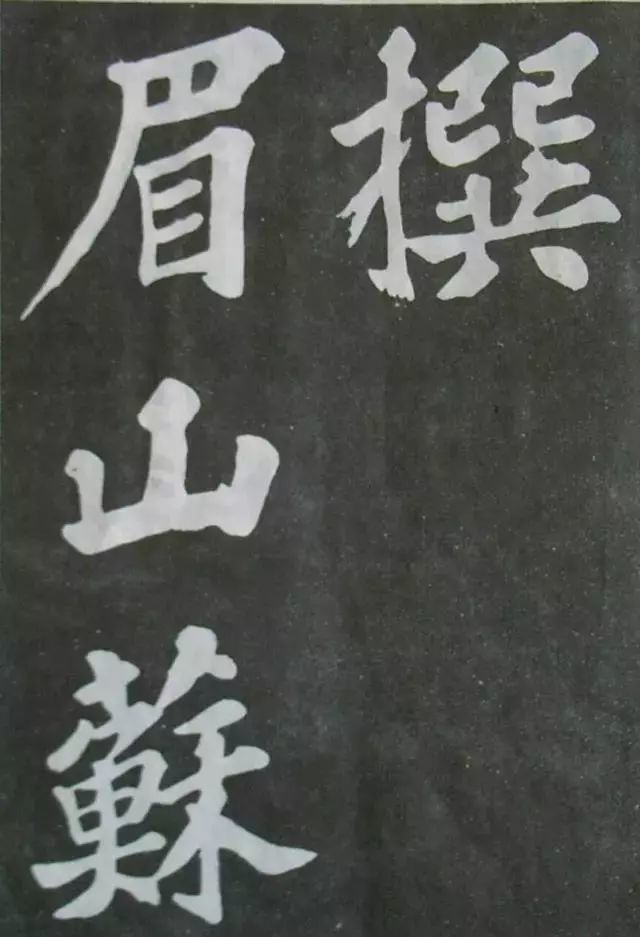 撰
眉山蘇